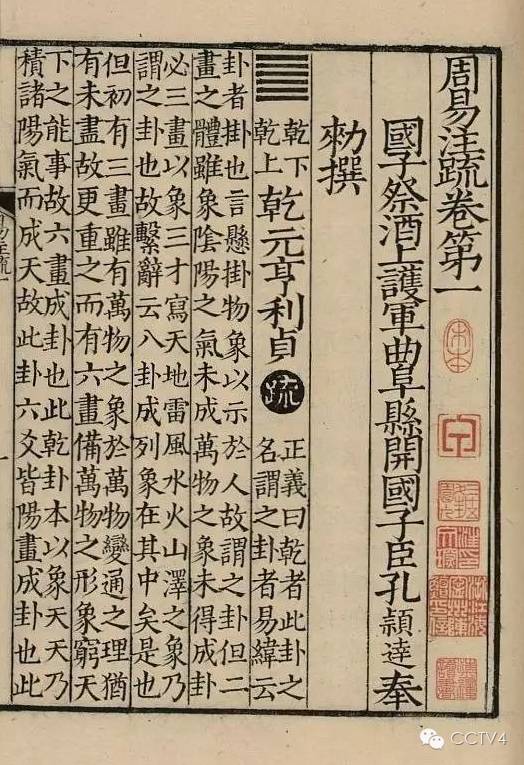 周易注疏卷第一
國子祭酒上護軍曲阜縣開國子臣孔穎達奉
勑撰
乾下
乾上
乾元亨利貞
疏
正義曰乾者此卦之
名謂之卦者易緯云
卦者掛也言懸掛物象以示於人故謂之卦但二
畫之體雖象陰陽之氣未成萬物之象未得成卦
必三畫以象三才寫天地雷風水火山澤之象乃
謂之卦也故繫辭云八卦成列象在其中矣是也
但初有三畫雖有萬物之象於萬物變通之理猶
有未盡故更重之而有六畫備萬物之形象窮天
下之能事故六畫成卦也此乾卦本以象天天乃
積諸陽氣而成天故此卦六爻皆陽畫成卦也此
CCTV4